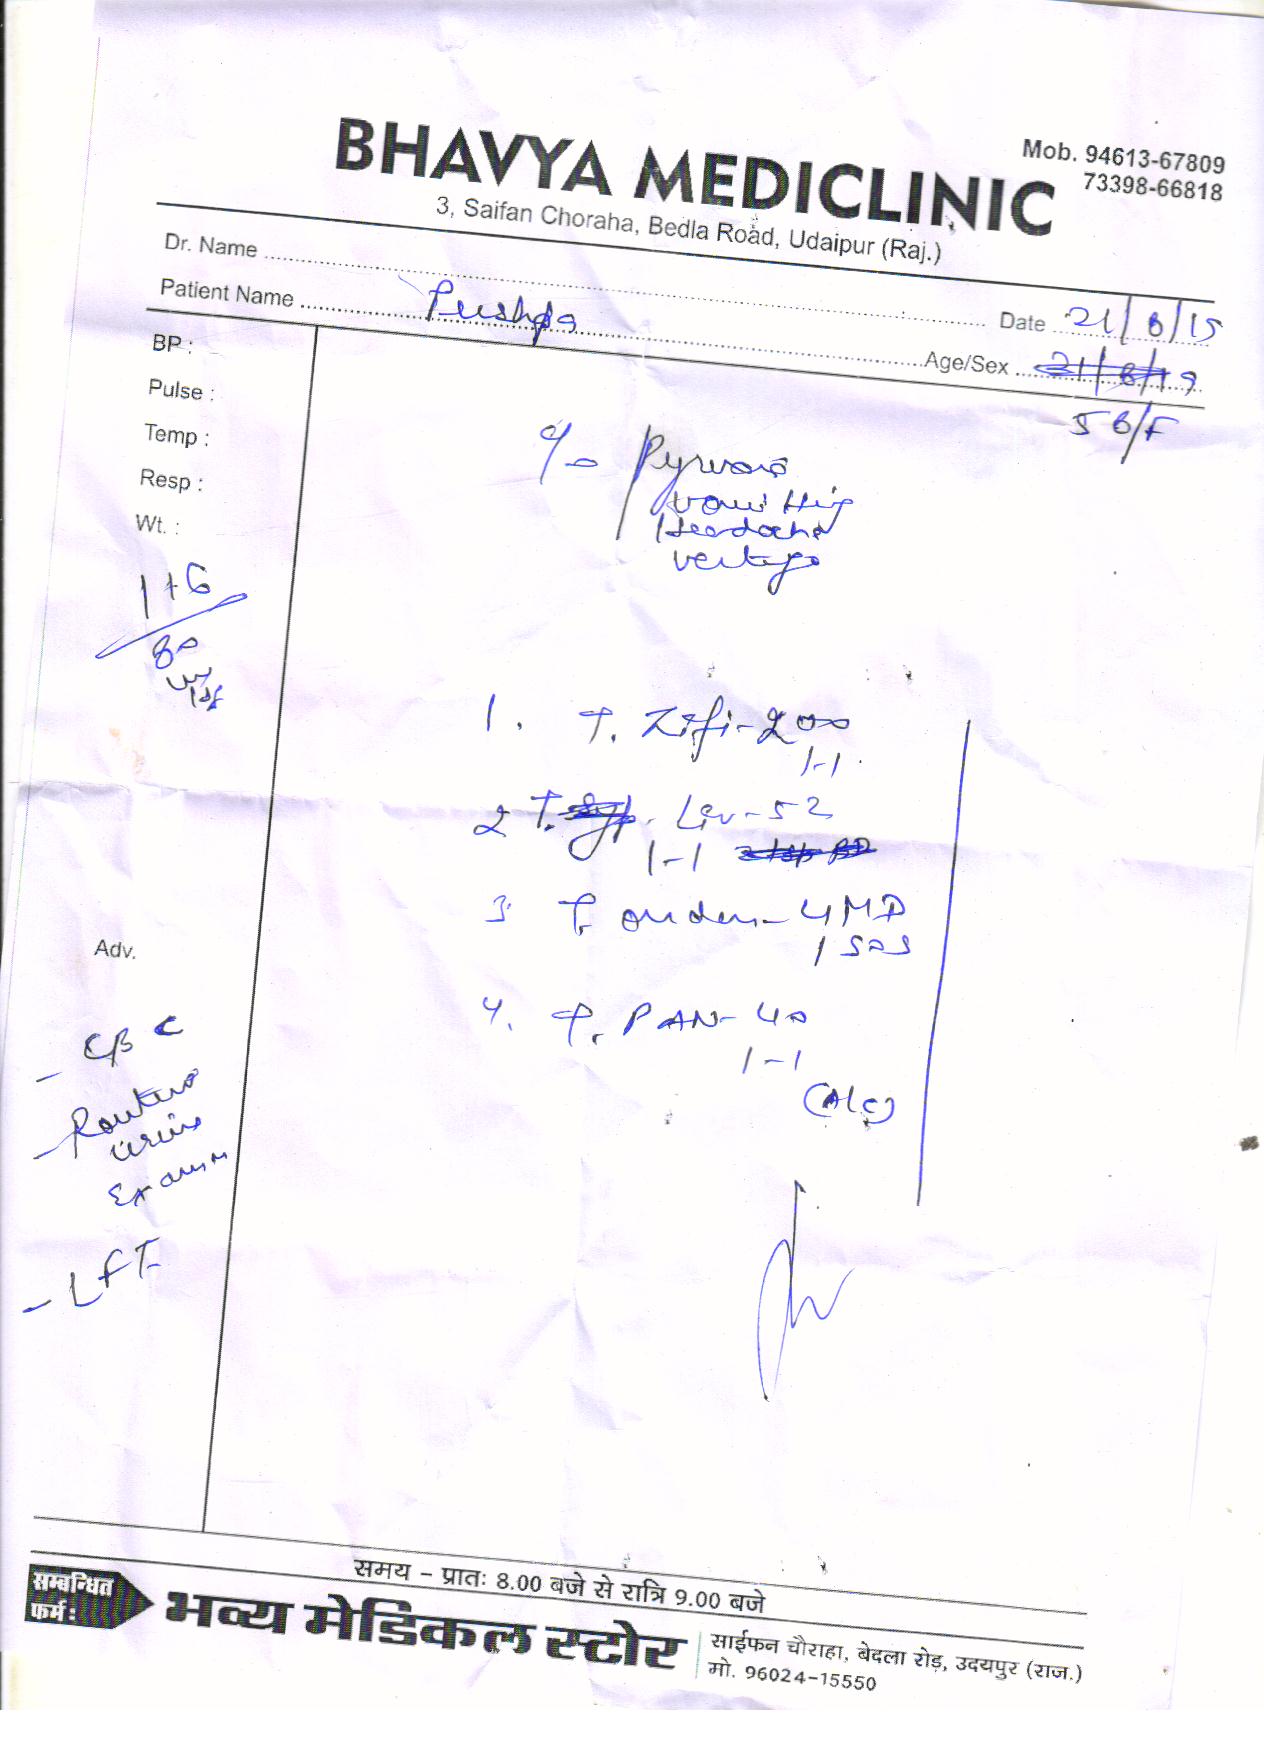 BHAVYA MEDICLINIC
Mob. 94613-67809
73398-66818
3, Saifan Choraha, Bedla Road, Udaipur (Raj.)
Dr. Name
Date 21/8/15
Patient Name Pushpa
Age/Sex
56/F
BP :
Pulse :
Temp :
Resp :
Wt. :
c/o Pyrexia
vomitting
Headache
vertigo
80
1. T. Zifi-200
1-1
2 T. Liv-52
1-1
3 T. onden-4MD
1 SOS
4. T. PAN-40
1-1
(A/c)
Adv.
- CBC
- Routine
urine
Exam
- LFT
समय - प्रातः 8.00 बजे से रात्रि 9.00 बजे
सम्बन्धित
फर्म :
भव्य मेडिकल स्टोर
साईफन चौराहा, बेदला रोड़, उदयपुर (राज.)
मो. 96024-15550